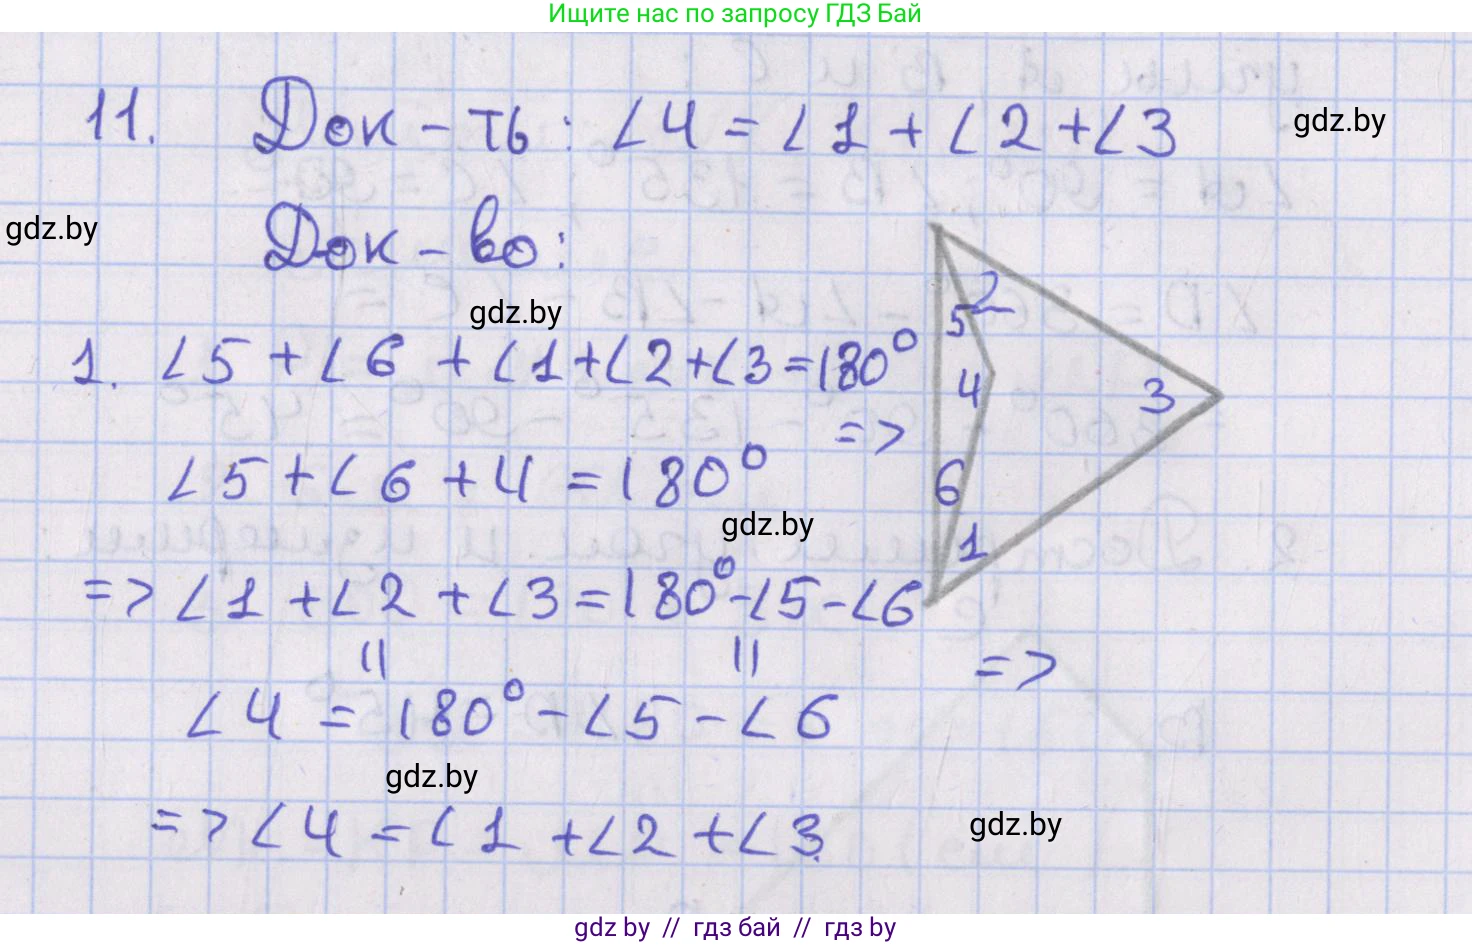 Ищите нас по запросу ГДЗ Бай
11. Док-ть: ∠4 = ∠1 + ∠2 + ∠3
gdz.by
gdz.by
Док-во:
gdz.by
1. ∠5 + ∠6 + ∠1 + ∠2 + ∠3 = 180°
=>
∠5 + ∠6 + 4 = 180°
gdz.by
=> ∠1 + ∠2 + ∠3 = 180° - ∠5 - ∠6
=>
∠4 = 180° - ∠5 - ∠6
gdz.by
=> ∠4 = ∠1 + ∠2 + ∠3.
gdz.by
2
5
4
3
6
1
gdz.by // гдз бай // гдз by